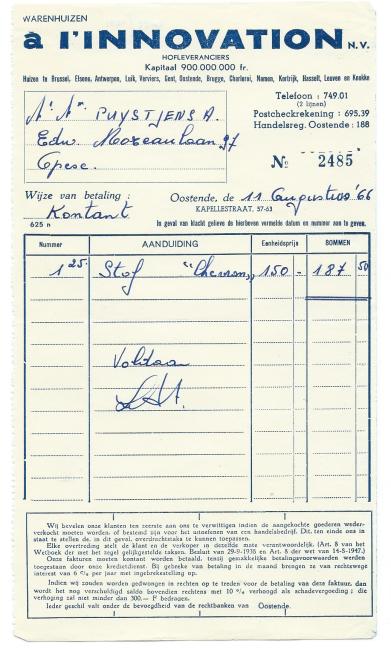 WARENHUIZEN
a l'INNOVATION N.V.
HOFLEVERANCIERS
Kapitaal 900.000.000 fr.
Huizen te Brussel, Elsene, Antwerpen, Luik, Verviers, Gent, Oostende, Brugge, Charleroi, Namen, Kortrijk, Hasselt, Leuven en Knokke
Telefoon : 749.01
(2 lijnen)
Postcheckrekening : 695.39
Handelsreg. Oostende : 188
PUYSTJENS A.
Edw. 97
No 2485
Wijze van betaling :
Kontant
Oostende, de 11 Augustus '66
KAPELLESTRAAT, 57-63
625 n
In geval van klacht gelieve de hierboven vermelde datum en nummer aan te geven.
Nummer AANDUIDING Eenheidsprijs SOMMEN
1 25 Stof 150 - 187 50
Voldaan
Wij bevelen onze klanten ten zeerste aan ons te verwittigen indien de aangekochte goederen weder-
verkocht moeten worden, of bestemd zijn voor het uitoefenen van een handelsbedrijf. Dit, ten einde ons in
staat te stellen de, in dit geval, overdrachtstaks te kunnen toepassen.
Elke overtreding stelt de klant en de verkoper in dezelfde mate verantwoordelijk. (Art. 8 van het
Wetboek der met het zegel gelijkgestelde taksen. Besluit van 29-9-1938 en Art. 8 der wet van 14-8-1947.)
Onze fakturen moeten kontant worden betaald, tenzij gemakkelijke betalingsvoorwaarden werden
toegestaan door onze kredietdienst. Bij gebreke van betaling in de maand brengen ze van rechtswege
interest van 6 % per jaar met ingebrekestelling op.
Indien wij zouden worden gedwongen in rechten op te treden voor de betaling van deze faktuur, dan
wordt het nog verschuldigd saldo bovendien rechtens met 10 % verhoogd als schadevergoeding ; die
verhoging zal niet minder dan 300.— F bedragen.
Ieder geschil valt onder de bevoegdheid van de rechtbanken van Oostende.